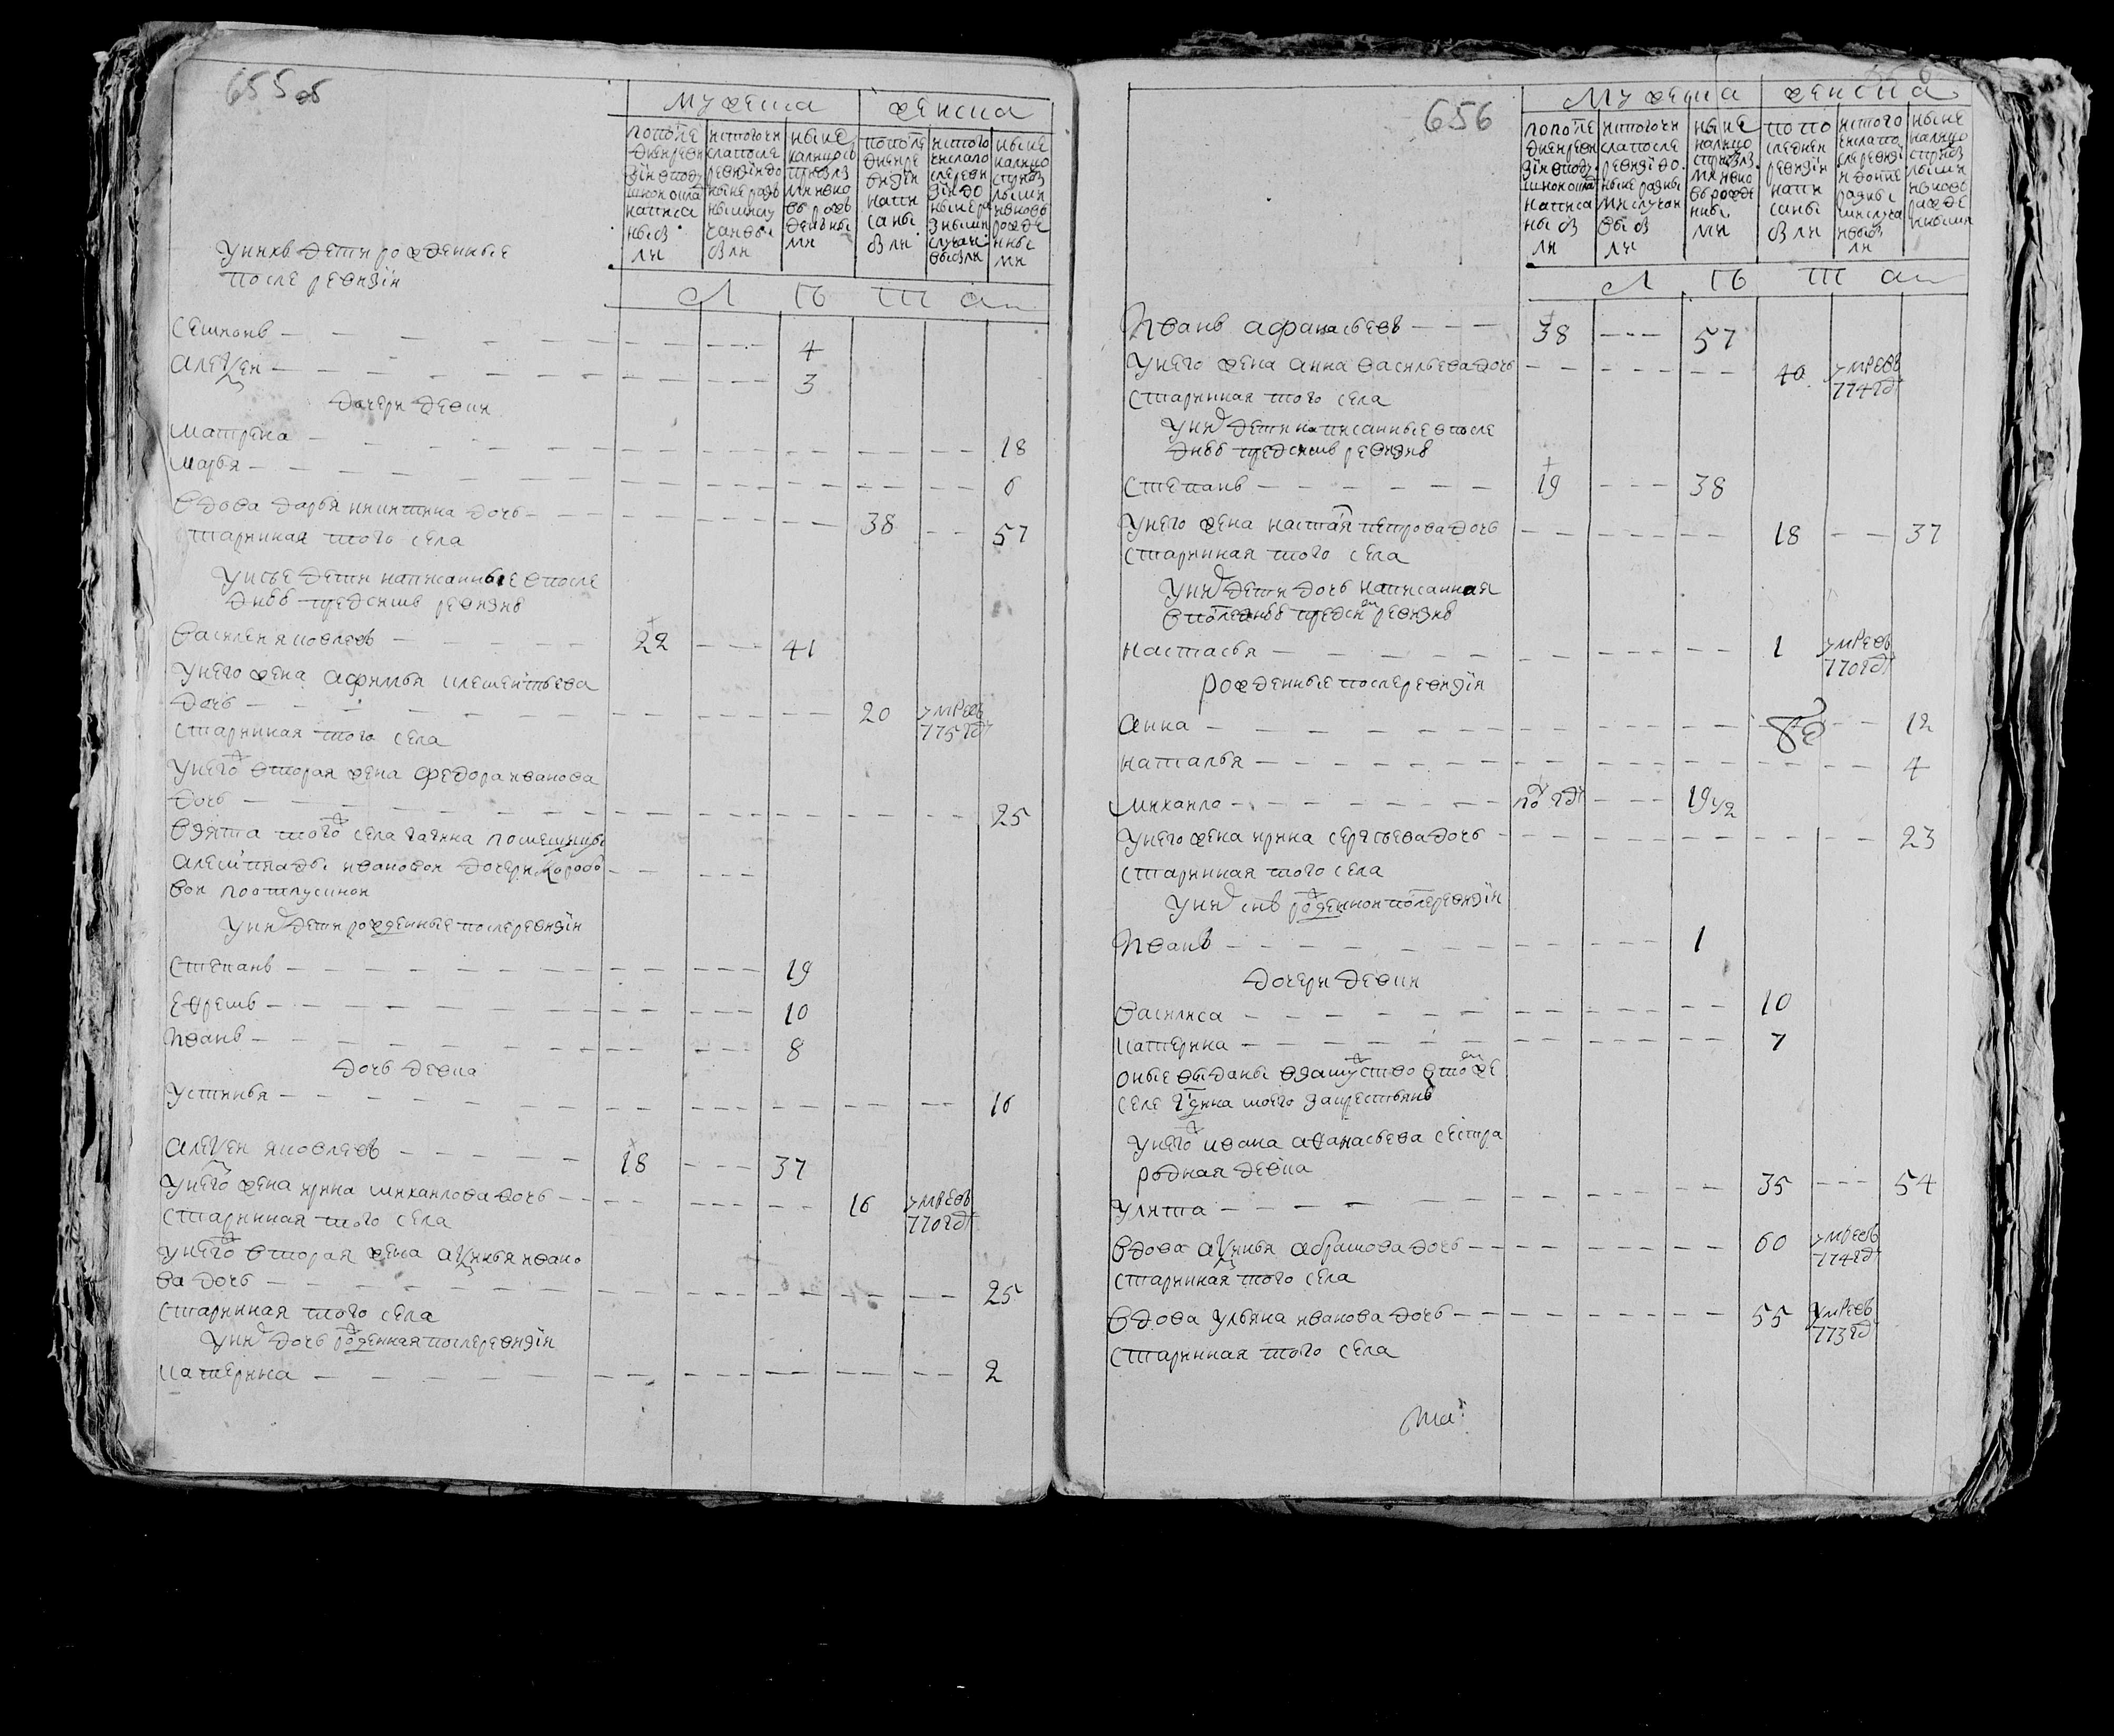 655 об
мужеска женска
У нихъ дети рожденные
после ревизіи
попосле
дней реви
зіи въ поду
шной оклад
написа
ны бы
ли
ис того чи
сла после
ревизіи до
ныне разъ
ными слу
чаями вы
были
ныне
на лицо съ
прибылы
ми и вно
въ рож
денны
ми
попосле
дней ре
визіи
напи
саны
были
ис того
числа по
сле реви
зіи до
ныне ра
зными
случаи
выбыли
ныне
на лицо
с прибы
лыми
и вновь
рожде
нны
ми
Л Ѣ Т А
Семионъ 4
Алексей 3
Дочери девки
Матрена 18
Марья 6
Вдова Дарья Никитина дочь 38 57
старинная того села
У ней дети написанные в после
дней пред симъ ревизіи
Василей Яковлевъ 22 41
У него жена Афимья Клементьева
дочь 20 умре въ 775 году
старинная того села
У него вторая жена Федора Иванова
дочь 25
взята того ж села Гагина помещицы
Алексинады Ивановой дочери Корово
вой по отпускной
У них дети рожденные после ревизіи
Степанъ 19
Ефремъ 10
Иванъ 8
Дочь девка
Устинья 16
Алексей Яковлевъ 18 37
У него жена Ирина Михайлова дочь 16 умре въ 770 году
старинная того села
У него вторая жена Аксинья Ивано
ва дочь 25
старинная того села
У них дочь рожденная после ревизіи
Катерина 2
656
мужеска женска
попосле
дней реви
зіи въ поду
шной оклад
написа
ны бы
ли
ис того чи
сла после
ревизіи до
ныне разны
ми случаи
выбы
ли
ныне
на лицо
с прибылы
ми и вно
въ рожде
нны
ми
по по
следней
ревизіи
напи
саны
были
ис того
числа по
сле ревизі
и до ныне
разны
ми случа
и выбы
ли
ныне
на лицо
с прибы
лыми
и вновь
рожде
нными
Л Ѣ Т А
Иванъ Афанасьевъ 38 57
У него жена Анна Васильева дочь 40 умре въ 774 году
старинная того села
У них дети написанные в после
дней пред симъ ревизіи
Степанъ 19 38
У него жена Настасья Петрова дочь 18 37
старинная того села
У них дети дочь написанная
в последней пред сим ревизіи
Настасья 1 умре въ 770 году
рожденные после ревизіи
Анна 12
Наталья 4
Михайло пол году 19 1/2
У него жена Ирина Сергеева дочь 23
старинная того села
У них сынъ рожденной после ревизіи
Иванъ 1
Дочери девки
Василиса 10
Катерина 7
оные выданы в замужство в том же
селе Гагина моего за крестьянъ
У него Ивана Афанасьева сестра
родная девка
Улита 35 54
Вдова Аксинья Абрамова дочь 60 умре въ 774 году
старинная того села
Вдова Ульяна Иванова дочь 55 умре въ 773 году
старинная того села